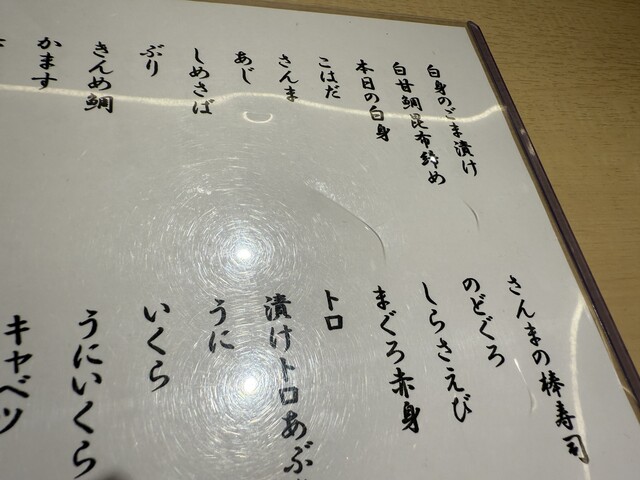 白身のごま漬け
白甘鯛昆布締め
本日の白身
こはだ
さんま
あじ
しめさば
ぶり
きんめ鯛
かます
さんまの棒寿司
のどぐろ
しらさえび
まぐろ赤身
トロ
漬けトロあぶ
うに
いくら
うにいくら
キャベツ